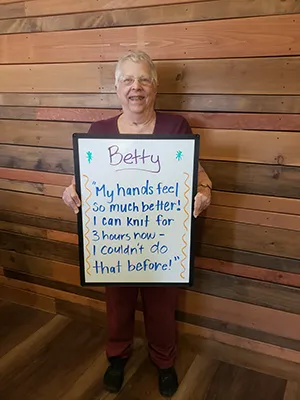 Betty
"My hands feel
so much better!
I can knit for
3 hours now -
I couldn't do
that before!"